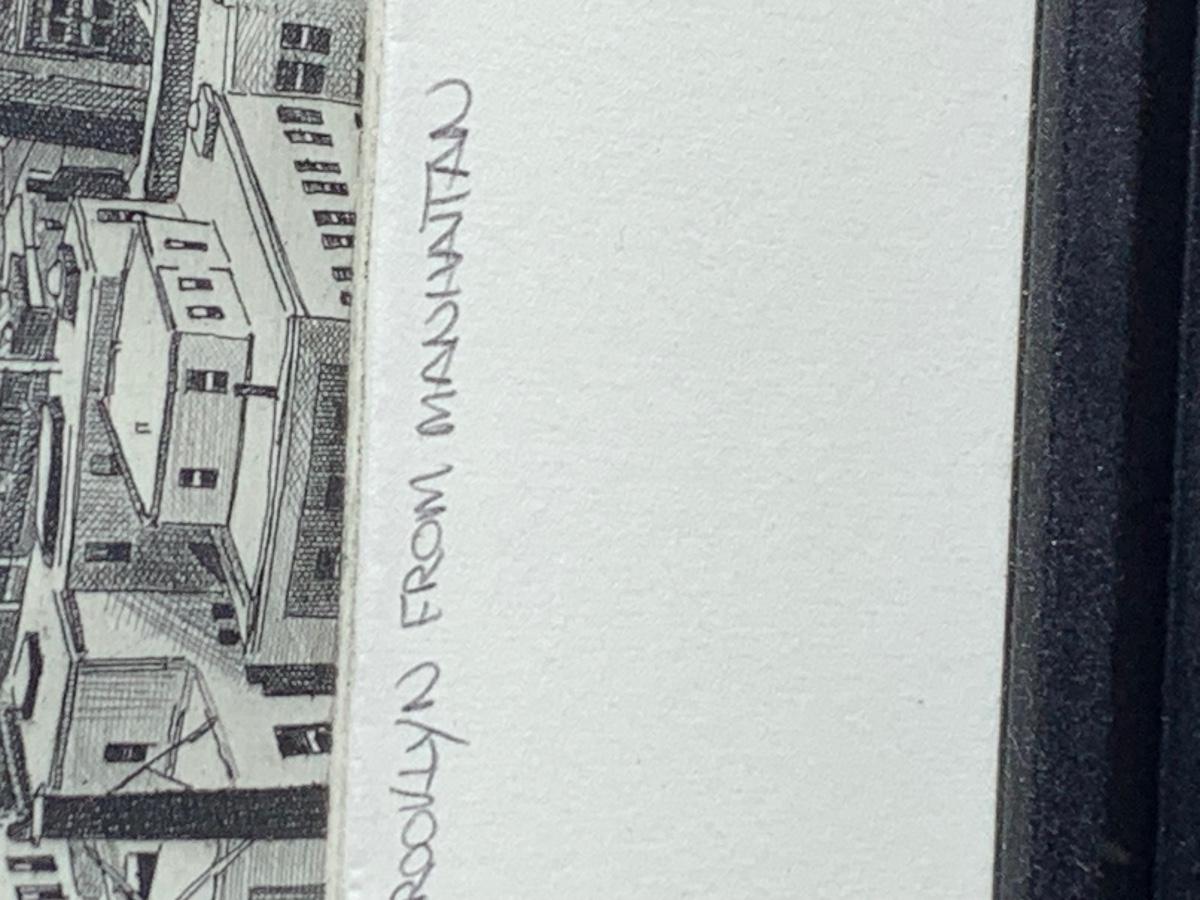 ROOKLYN FROM MANHATTAN